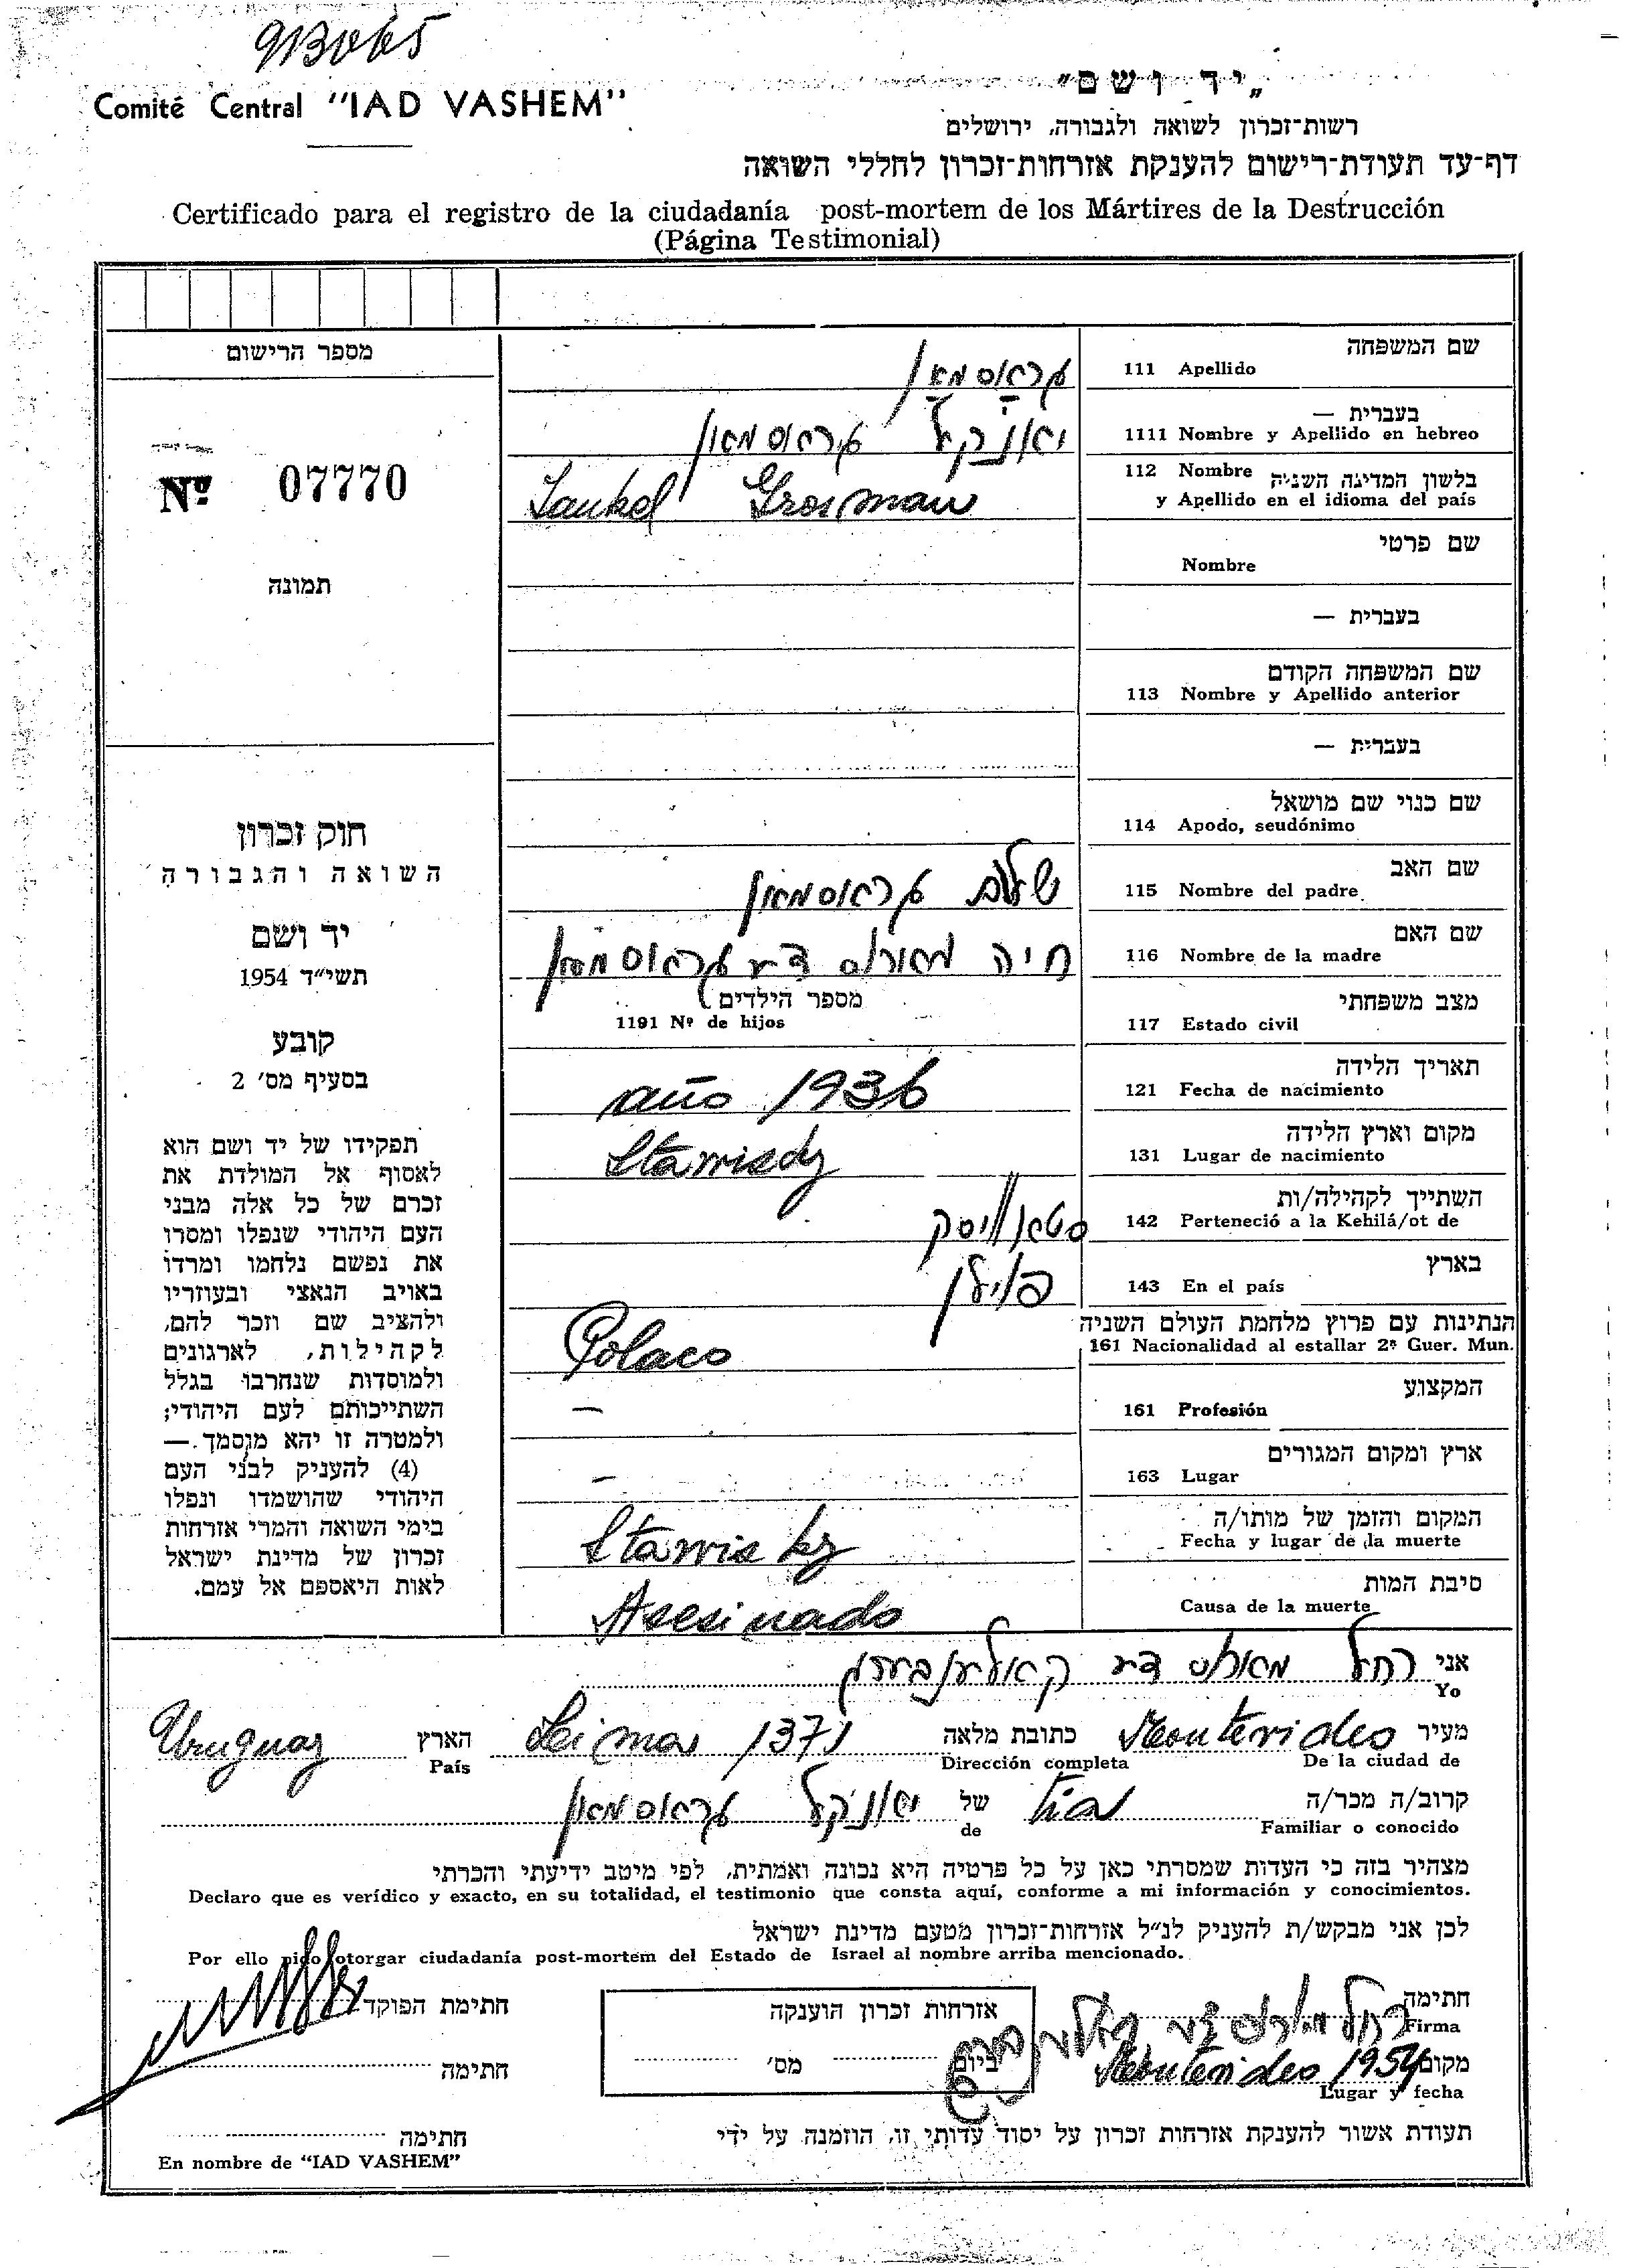 913065
Comité Central "IAD VASHEM"
„יד ושם"
רשות־זכרון לשואה ולגבורה, ירושלים
דף־עד תעודת־רישום להענקת אזרחות־זכרון לחללי השואה
Certificado para el registro de la ciudadanía post-mortem de los Mártires de la Destrucción
(Página Testimonial)
מספר הרישום
Nº 07770
תמונה
חוק זכרון
השואה והגבורה
יד ושם
תשי״ד 1954
קובע
בסעיף מס׳ 2
תפקידו של יד ושם הוא
לאסוף אל המולדת את
זכרם של כל אלה מבני
העם היהודי שנפלו ומסרו
את נפשם נלחמו ומרדו
באויב הנאצי ובעוזריו
ולהציב שם וזכר להם,
לקהילות, לארגונים
ולמוסדות שנחרבו בגלל
השתייכותם לעם היהודי;
ולמטרה זו יהא מוסמך. —
(4) להעניק לבני העם
היהודי שהושמדו ונפלו
בימי השואה והמרי אזרחות
זכרון של מדינת ישראל
לאות היאספם אל עמם.
שם המשפחה
111 Apellido גראָסמאַן
בעברית —
1111 Nombre y Apellido en hebreo יאנקל גראסמאן
112 Nombre בלשון המדינה השניה
y Apellido en el idioma del país Jankel Grosman
שם פרטי
Nombre
בעברית —
שם המשפחה הקודם
113 Nombre y Apellido anterior
בעברית —
שם כנוי שם מושאל
114 Apodo, seudónimo
שם האב
115 Nombre del padre שלום גראסמאן
שם האם
116 Nombre de la madre חיה דע גראסמאן
מצב משפחתי מספר הילדים
117 Estado civil 1191 Nº de hijos
תאריך הלידה
121 Fecha de nacimiento año 1936
מקום וארץ הלידה
131 Lugar de nacimiento
השתייך לקהילה/ות
142 Perteneció a la Kehilá/ot de סטאוויסק
בארץ
143 En el país פוילן
הנתינות עם פרוץ מלחמת העולם השניה
161 Nacionalidad al estallar 2ª Guer. Mun. Polaco
המקצוע
161 Profesión —
ארץ ומקום המגורים
163 Lugar —
המקום והזמן של מותו/ה
Fecha y lugar de la muerte Stawisky
סיבת המות
Causa de la muerte Asesinado
אני רחל דע
Yo
מעיר Montevideo כתובת מלאה 1371 הארץ Uruguay
De la ciudad de Dirección completa País
קרוב/ה מכר/ה tia של יאנקל גראסמאן
Familiar o conocido de
מצהיר בזה כי העדות שמסרתי כאן על כל פרטיה היא נכונה ואמתית, לפי מיטב ידיעתי והכרתי
Declaro que es verídico y exacto, en su totalidad, el testimonio que consta aquí, conforme a mi información y conocimientos.
לכן אני מבקש/ת להעניק לנ״ל אזרחות־זכרון מטעם מדינת ישראל
Por ello pido otorgar ciudadanía post-mortem del Estado de Israel al nombre arriba mencionado.
חתימה רחל דע
Firma
אזרחות זכרון הוענקה
ביום מס׳
חתימת הפוקד
מקום Montevideo 1954
Lugar y fecha
חתימה
תעודת אשור להענקת אזרחות זכרון על יסוד עדותי זו, הוזמנה על ידי
חתימה
En nombre de "IAD VASHEM"